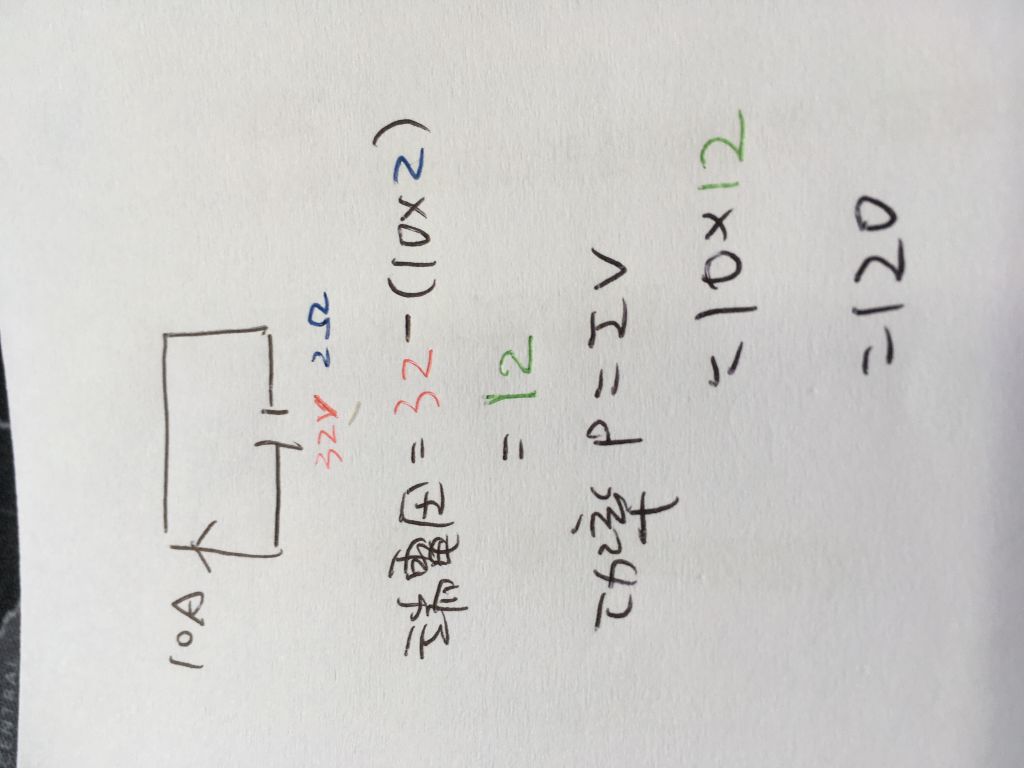 10A
32V 2Ω
端電压=32-(10×2)
=12
功率 P=IV
=10×12
=120